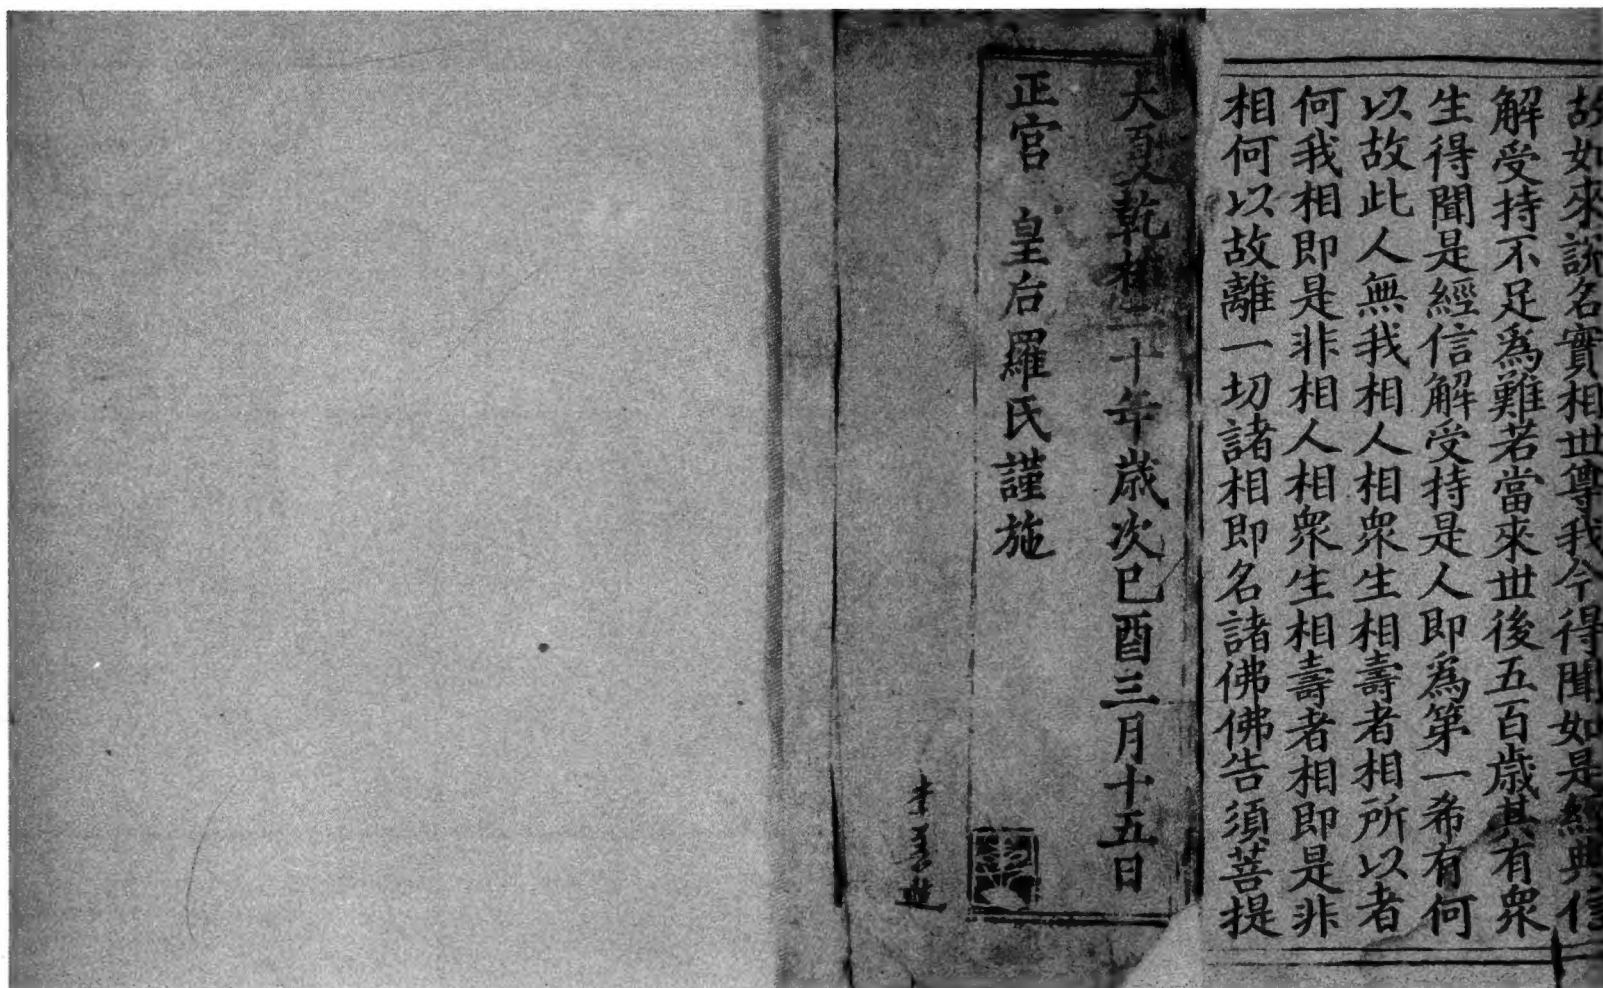 故如來說名實相世尊我今得聞如是經典信
解受持不足為難若當來世後五百歲其有眾
生得聞是經信解受持是人即為第一希有何
以故此人無我相人相眾生相壽者相所以者
何我相即是非相人相眾生相壽者相即是非
相何以故離一切諸相即名諸佛佛告須菩提
大夏乾祐二十年歲次己酉三月十五日
正宮 皇后羅氏謹施